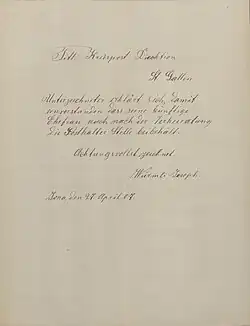 Titt. Kreispost Direktion
St. Gallen
Unterzeichneter erklärt sich damit
einverstanden dass seine künftige
Ehefrau noch nach der Verheiratung
Die Posthalter Stelle beibehält.
Achtungsvollst zeichnet
Joseph
Jona den 27 April 07